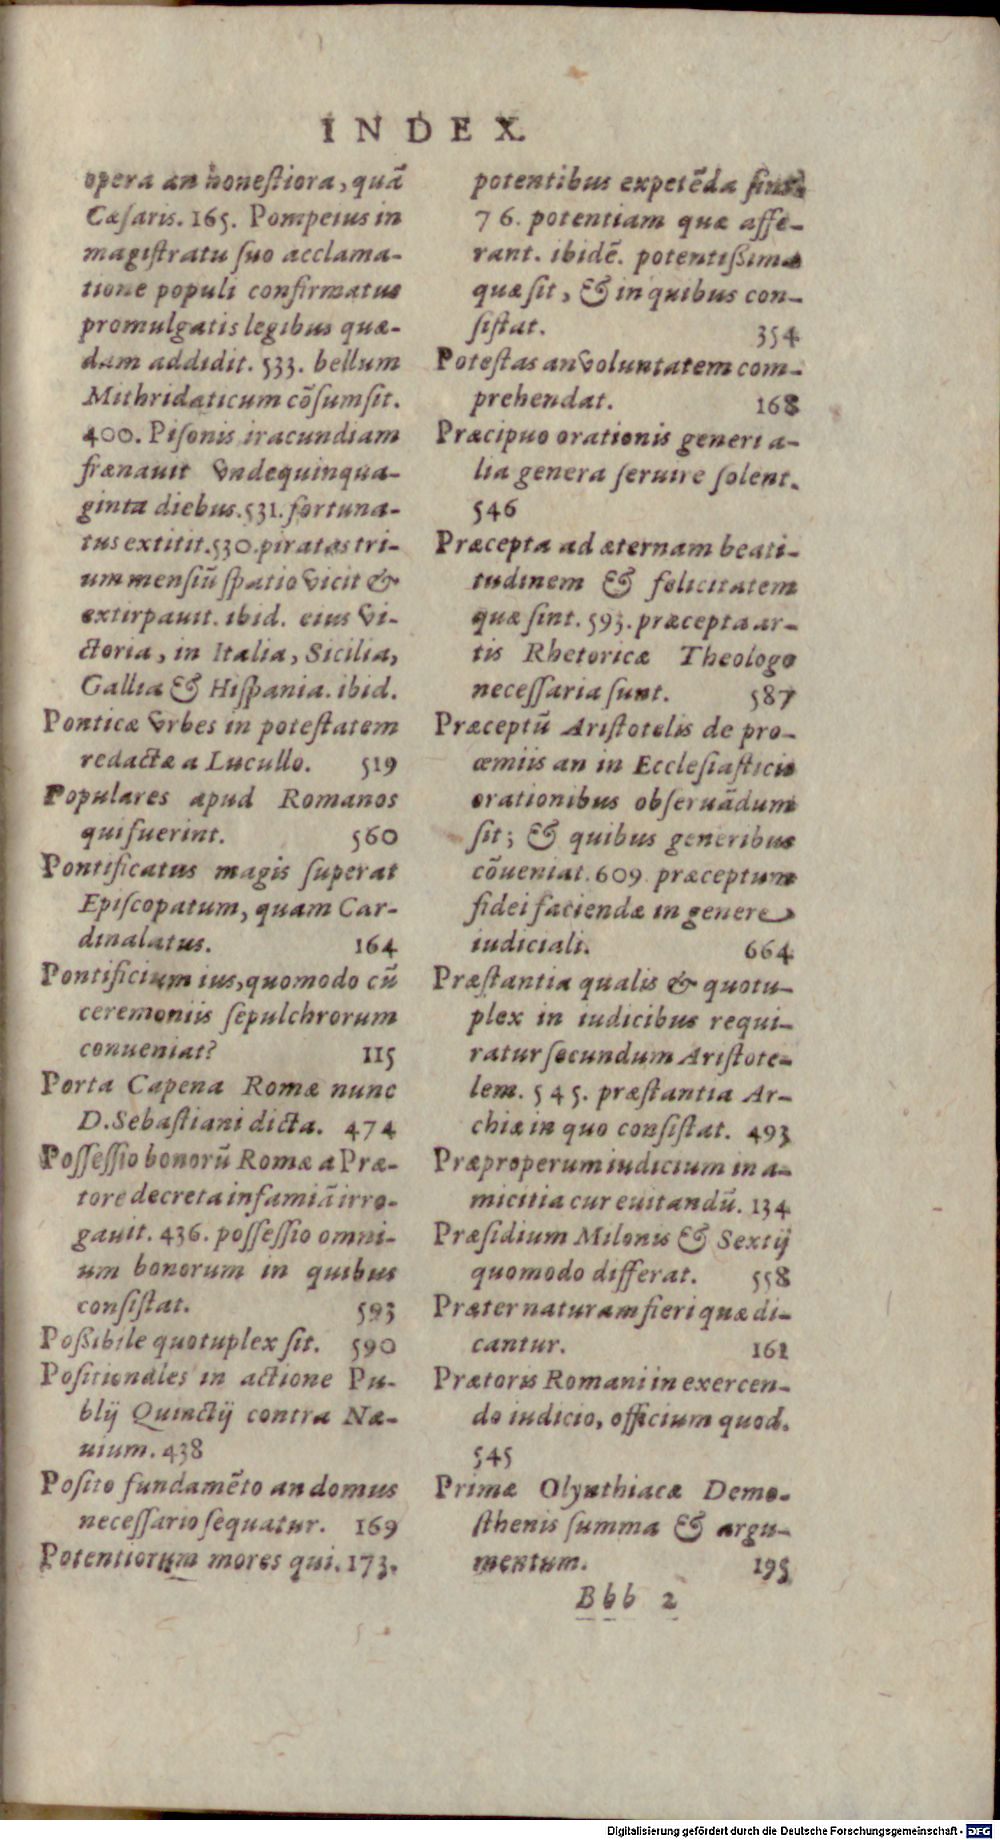 INDEX
opera an honeſtiora, quā
Cæſaris. 165. Pompeius in
magiſtratu ſuo acclama-
tione populi confirmatus
promulgatis legibus quæ-
dam addidit. 533. bellum
Mithridaticum cōſumſit.
400. Piſonis iracundiam
frænauit vndequinqua-
ginta diebus. 531. fortuna-
tus extitit. 530. piratas tri-
um menſiū ſpatio vicit &
extirpauit. ibid. eius vi-
ctoria, in Italia, Sicilia,
Gallia & Hiſpania. ibid.
Ponticæ vrbes in poteſtatem
redactæ a Lucullo. 519
Populares apud Romanos
qui fuerint. 560
Pontificatus magis ſuperat
Epiſcopatum, quam Car-
dinalatus. 164
Pontificium ius, quomodo cū
ceremoniis ſepulchrorum
conueniat? 115
Porta Capena Romæ nunc
D. Sebaſtiani dicta. 474
Poſſeſſio bonorū Romæ a Præ-
tore decreta infamiā irro-
gauit. 436. poſſeſſio omni-
um bonorum in quibus
conſiſtat. 593
Poßibile quotuplex ſit. 590
Poſitionales in actione Pu-
blij Quinctij contra Næ-
uium. 438
Poſito fundamēto an domus
neceſſario ſequatur. 169
Potentiorum mores qui. 173.
potentibus expetēda ſint.
76. potentiam quæ affe-
rant. ibidē. potentißima
quæ ſit, & in quibus con-
ſiſtat. 354
Poteſtas an voluntatem com-
prehendat. 168
Præcipuo orationis generi a-
lia genera ſeruire ſolent.
546
Præcepta ad æternam beati-
tudinem & felicitatem
quæ ſint. 593. præcepta ar-
tis Rhetoricæ Theologo
neceſſaria ſunt. 587
Præceptū Ariſtotelis de pro-
œmiis an in Eccleſiaſticis
orationibus obſeruādum
ſit; & quibus generibus
cōueniat. 609. præceptum
fidei faciendæ in genere
iudiciali. 664
Præſtantia qualis & quotu-
plex in iudicibus requi-
ratur ſecundum Ariſtote-
lem. 545. præſtantia Ar-
chiæ in quo conſiſtat. 493
Præproperum iudicium in a-
micitia cur euitandū. 134
Præſidium Milonis & Sextij
quomodo differat. 558
Præter naturam fieri quæ di-
cantur. 161
Prætoris Romani in exercen-
do iudicio, officium quod.
545
Primæ Olynthiacæ Demo-
ſthenis ſumma & argu-
mentum. 195
Bbb 2
Digitalisierung gefördert durch die Deutsche Forschungsgemeinschaft - DFG